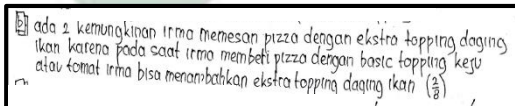 b ada 2 kemungkinan irma memesan pizza dengan ekstra topping daging
ikan karena pada saat irma membeli pizza dengan basic topping keju
atau tomat irma bisa menambahkan ekstra topping daging ikan (2/8)